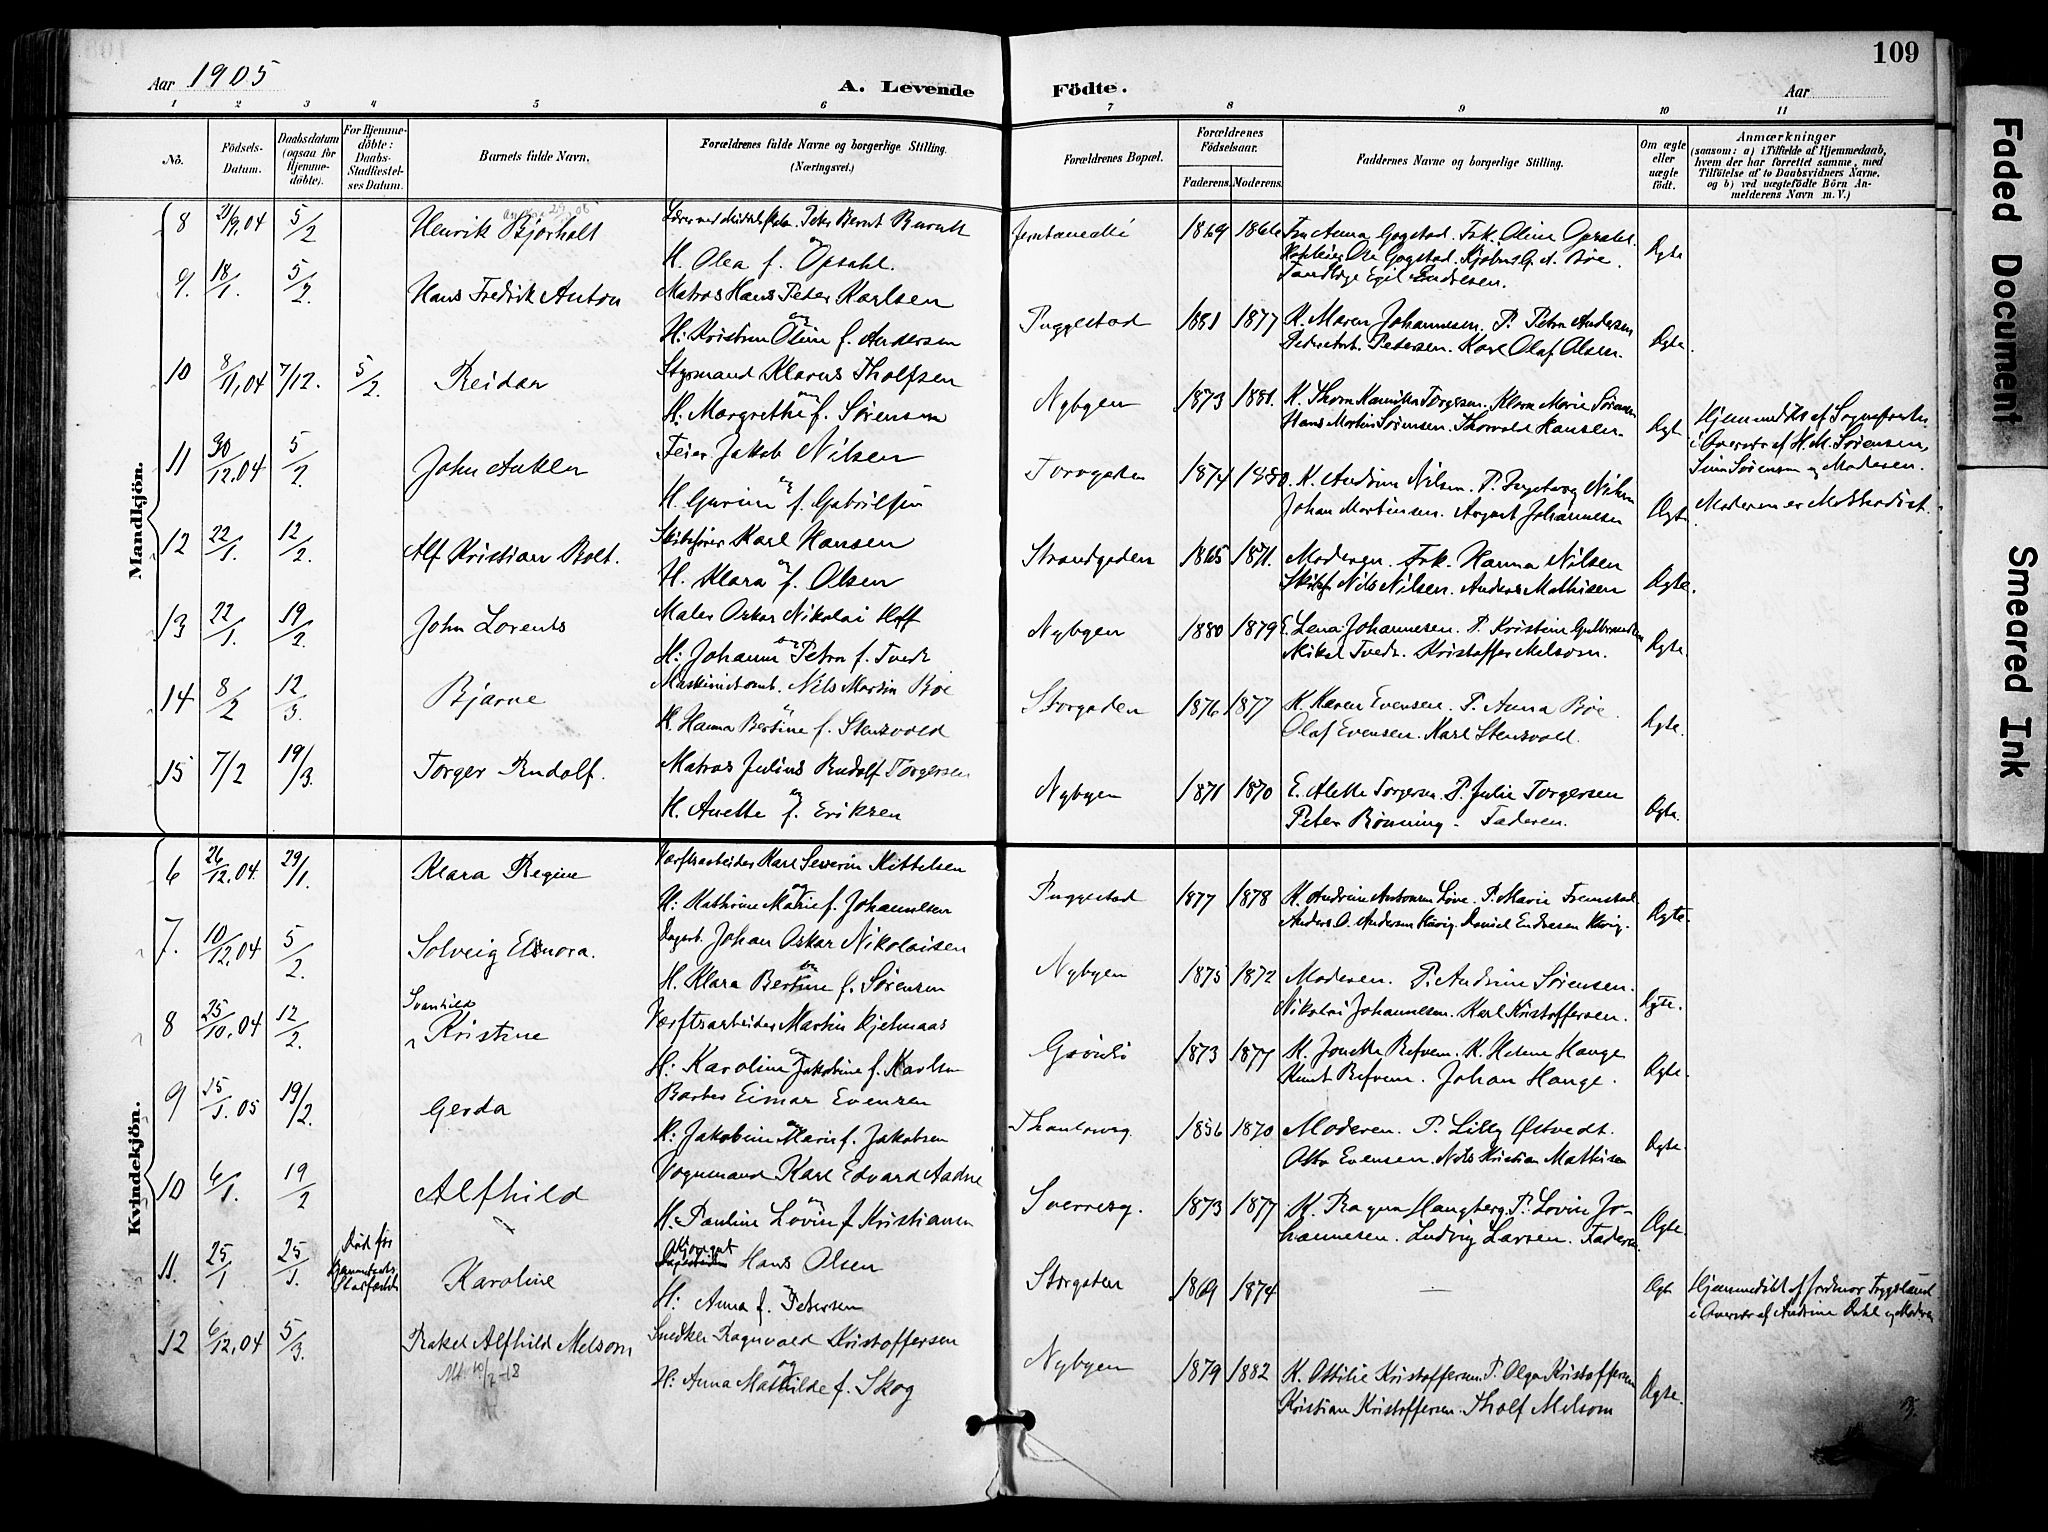 109
Aar 1905
A. Levende Födte.
Aar
1 2 3 4 5 6 7 8 9 10 11
No.
Födsels-Datum.
Daabsdatum (ogsaa for Hjemme-döbte).
For Hjemme-döbte: Daabs-Stadfæstel-ses Datum.
Barnets fulde Navn.
Forældrenes fulde Navne og borgerlige Stilling. (Næringsvei.)
Forældrenes Bopæl.
Forældrenes Födselsaar.
Faderens. Moderens.
Faddernes Navne og borgerlige Stilling.
Om ægte eller uægte födt.
Anmærkninger
(saasom: a) i Tilfælde af Hjemmedaab, hvem der har forrettet samme, med Tilföielse af to Daabsvidners Navne, og b) ved uægtefödte Börn An-melderens Navn m. V.)
Mandkjön.
8 21/9.04 5/2 Henrik Bjørholt Peter Bernt
H. Olea f. Opsahl. 1869 1866 Fru Anna Gogstad. Frk. Oline Opsahl.
Ole Gogstad. Bøe. Ægte
Tandlæge Egil Endresen.
9. 18/1. 5/2. Hans Fredrik Anton Matros Hans Peter Karlsen
og
H: Kristine Oline f. Andersen Puggestad 1881 1877 K. Maren Johannesen. P. Petra Andersen
Pedersen. Karl Olaf Olsen. Ægte.
10 8/11.04 7/12. 5/2. Reidar Styrmand Klarus Tholfsen
og
H. Margrethe f. Sørensen Nybyen 1873 1881. K. Thora Torgersen. Klara Marie Sørensen
Hans Martin Sørensen. Thorvald Hansen. Ægte
Hjemmedøbt af Sognepresten
i Overvær af H. M. Sørensen,
Sørensen og Moderen.
11 30/12.04 5/2 John Feier Jakob Nilsen
og
H. Gurine f. Gabrielsen Torvgaden 1874 1880. K. Andrine Nilsen. P. Ingeborg Nilsen
Johan Martinsen. August Johannesen Ægte. Moderen er Methodist.
12 22/1. 12/2. Alf Kristian Holt. Skibsfører Karl Hansen
og
H. Klara f. Olsen Strandgaden 1865 1871. Moderen. Frk. Hanna Nilsen
Nils Nilsen. Anders Mathisen Ægte.
13 22/1. 19/2. John Lorents Maler Oskar Nikolai Hoff
og
H: Johanne Petra f. Tvedt Nybyen 1880 1879 E. Lena Johannesen. P. Kristine Gulbrandsen
Mikal Tvedt. Kristoffer Melsom. Ægte.
14 8/2 12/3. Bjarne Nils Martin Bøe
og
H. Hanna Bertine f. Stensvold Storgaden 1876 1877 K. Karen Evensen. P. Anna Bøe.
Olaf Evensen. Karl Stensvold. Ægte.
15 7/2 19/3. Torger Rudolf. Matros Julius Rudolf Torgersen
og
H. Anette f. Eriksen Nybyen 1871 1870 E. Alette Torgersen. P. Julie Torgersen
Peter Bønning. Faderen. Ægte.
Kvindekjön.
6 26/12.04. 29/1. Klara Regine Værftsarbeider Karl Severin Kittelsen
og
H: Kathrine Marie f. Johannesen Puggestad 1877 1878 K. Andrine Antonsen Løve. P. Marie Fremstad
Anders O. Andersen Daniel Endresen Ægte.
7. 10/12.04 5/2. Solveig Elenora. Dagarb. Johan Oskar Nikolaisen
og
H. Klara Bertine f. Sørensen Nybyen 1875 1872 Moderen. P. Andrine Sørensen.
Nikolai Johannesen. Karl Kristoffersen. Ægte.
8 25/10.04 12/2. Svanhild Kristine Værftsarbeider Martin Kjelmaas
og
H: Karoline Jakobine f. Karlsen 1873 1877 K. Jonette Refvem. K. Helene Hauge
Knut Refvem. Johan Hauge. Ægte.
9 15/1.05 19/2. Gerda Barber Einar Evensen
og
H: Jakobine Marie f. Jakobsen Thaulowsg. 1856 1870 Moderen. P. Lilly Østvedt.
Otto Evensen. Nils Kristian Mathisen Ægte.
10 6/1. 19/2 Alfhild Vognmand Karl Edvard Aadne
og
H. Pauline Lovise f. Kristiansen Sverresg. 1873 1877 K. Ragna Haugberg. P. Lovise Jo-
hannesen. Ludvig Larsen. Faderen. Ægte.
11. 25/1 25/1. Død før Karoline Hans Olsen
og
H: Anna f. Petersen Storgaten 1869 1874 — Ægte Hjemmedøbt af Jordmor
i Overvær af Andrine og Moderen
12 6/12.04 5/3. Rakel Alfhild Melsom Snedker Ragnvald Kristoffersen
og
H: Anna Mathilde f. Skog Nybyen 1879 1882 K. Ottilie Kristoffersen. P. Olga Kristoffersen
Kristian Kristoffersen. Tholf Melsom Ægte.
Faded Document
Smeared Ink